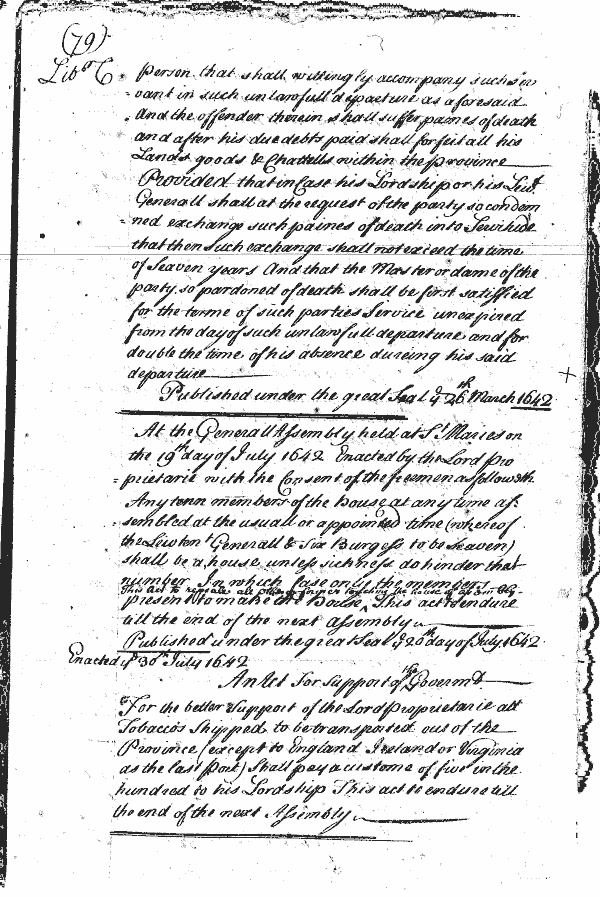 (79)
Libr C
person that shall wittingly accompany such serv
=vant in such unlawfull departure as aforesaid
And the offender therein shall suffer paines of death
and after his due debts paid shall forfeit all his
Lands goods & Chattells within the province
Provided that in Case his Lordship or his Leivt
Generall shall at the request of the party so condem
=ned exchange such paines of death into Servitude
that then such exchange shall not exceed the time
of Seaven years And that the Master or dame of the
party so pardoned of death shall be first satisfied
for the terme of such parties Service unexpired
from the day of such unlawfull departure and for
double the time of his absence dureing his said
departure
Published under the great Seal ye 26th March 1642
At the Generall Assembly held at St Maries on
the 19th day of July 1642 Enacted by the Lord Pro
=prietarie with the Consent of the freemen as followeth
Any tenn members of the House at any time as=
=sembled at the usual or appointed time (whereof
the Leivtent Generall & Six Burgess to be Seaven)
shall be a house unless sickness do hinder that
number In which Case only the members
This Act to repeale all other former touching the house of
present to make the House This act to endure
till the end of the next assembly
Published under the great Seal ye 20th day of July 1642
Enacted ye 30th July 1642
An Act For Support of the Govermt
For the better Support of the Lord Proprietarie all
Tobacco's Shipped to be transported out of the
Province (except to England Ireland or Virginia
as the last Port) Shall pay a custome of five in the
hundred to his Lordship This act to endure till
the end of the next Assembly